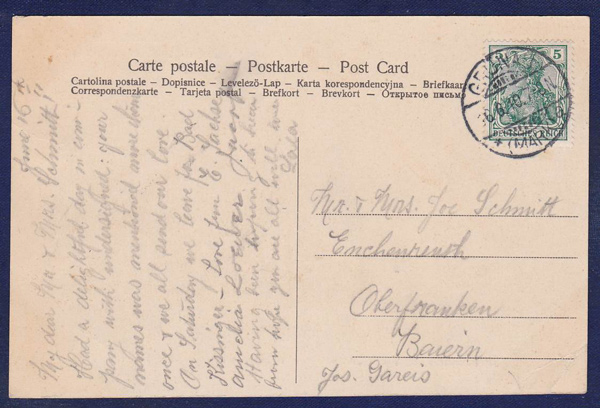 Carte postale – Postkarte – Post Card
Cartolina postale – Dopisnice – Levelező-Lap – Karta korespondencyjna – Briefkaart
Correspondenzkarte – Tarjeta postal – Brefkort – Brevkort – Открытое письмо
5
DEUTSCHES REICH
June 16th
My dear Mr & Mrs. Schmitt!!
Had a delightful day in
pany with undersigned. your
names was mentioned more than
once & we all send our love.
On Saturday we leave for Bad
Kissingen – Love from
Amelia
Having been hoping to hear
from you you are all well
Mr. & Mrs. Joe Schmitt
Enchenreuth
Oberfranken
Baiern
Jos. Gareis